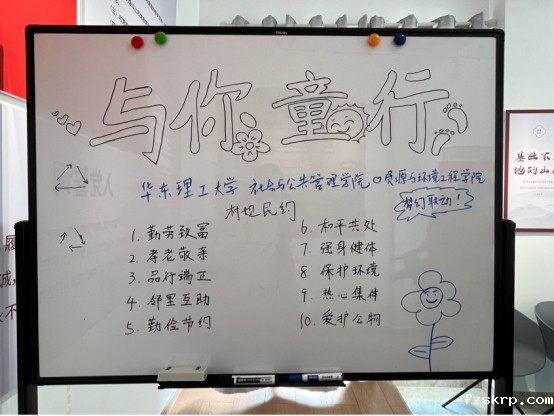 与你童行
华东理工大学 社会与公共管理学院 资源与环境工程学院
梦幻联动!
村规民约
1. 勤劳致富
2. 孝老敬亲
3. 品行端正
4. 邻里互助
5. 勤俭节约
6. 和平共处
7. 强身健体
8. 保护环境
9. 热心集体
10. 爱护公物
基础下
fzskrp.com